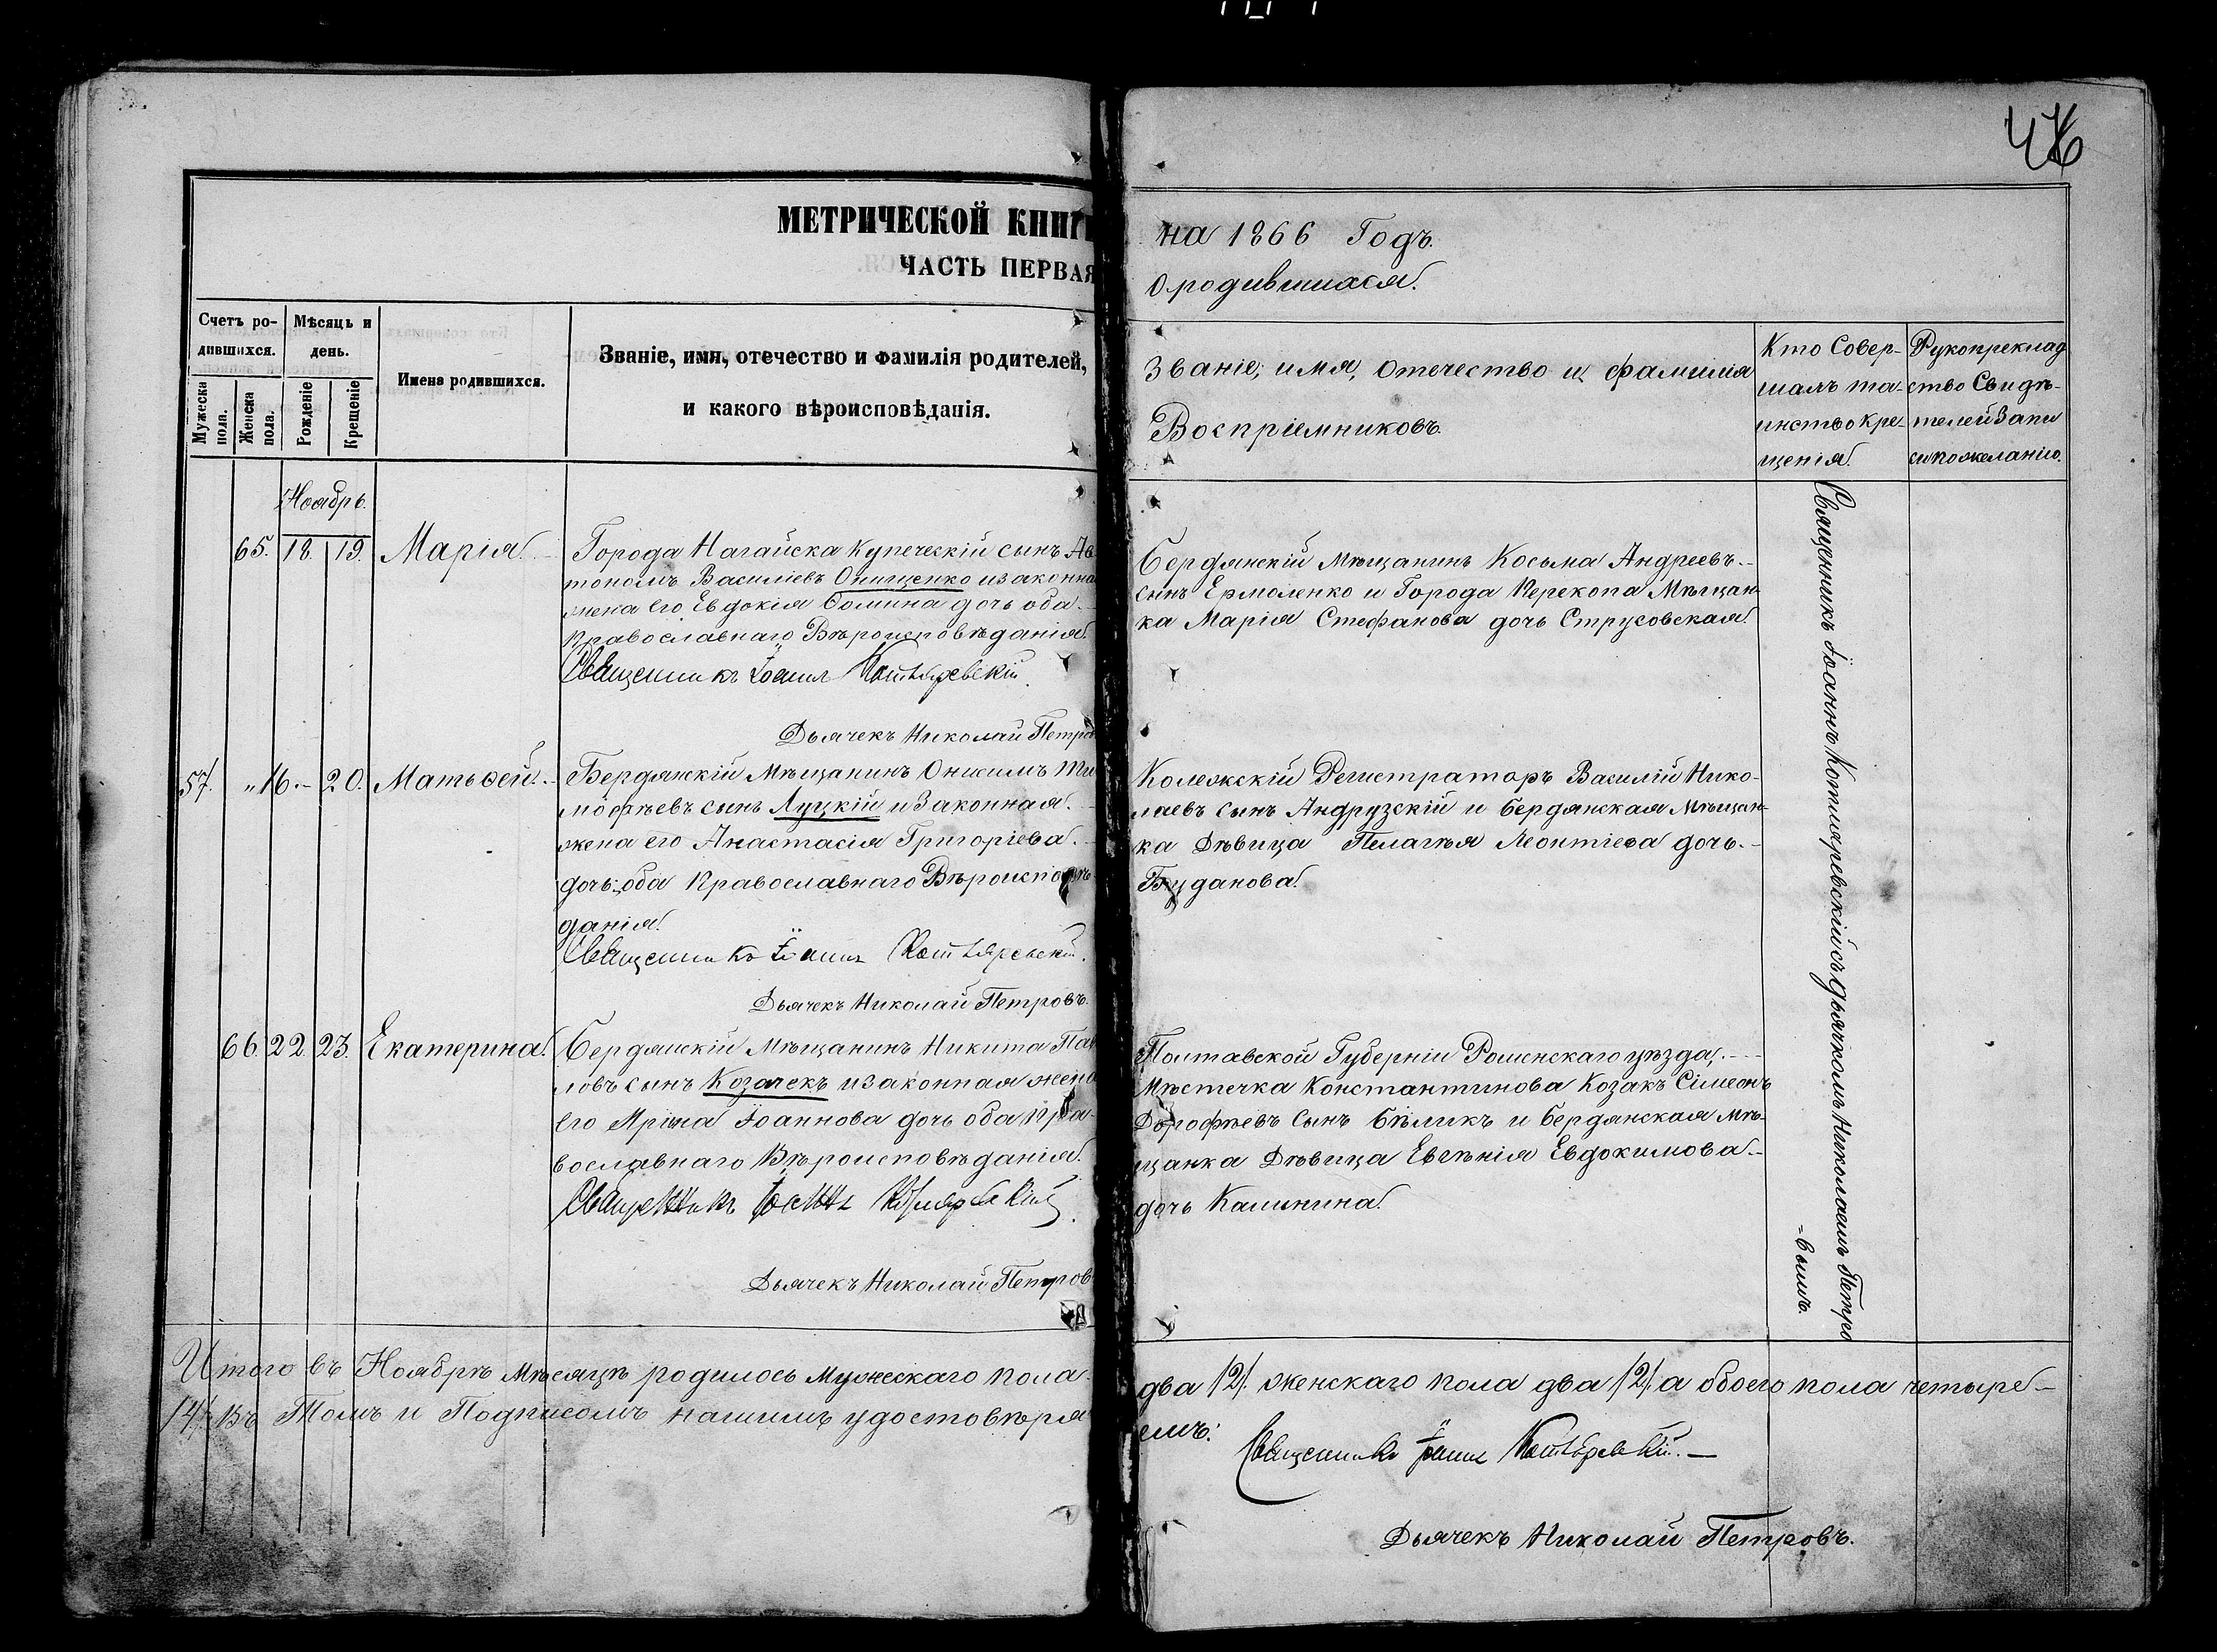 46
МЕТРИЧЕСКОЙ КНИГИ
на 1866 Годъ.
ЧАСТЬ ПЕРВАЯ
О родившихся.
Счетъ ро-
дившихся.
Мужеска пола.
Женска пола.
Мѣсяцъ и
день.
Рожденіе
Крещеніе
Имена родившихся.
Званіе, имя, отечество и фамилія родителей,
и какого вѣроисповѣданія.
Званіе, имя, отечество и фамилія
Воспріемниковъ.
Кто Совер-
шалъ та-
инство кре-
щенія.
Рукопреклад
ство Свидѣ-
телей Запи
си по желанію.
Ноябрь.
65. 18. 19. Марія.
Города Нагайска Купеческій сынъ Ав
тономъ Василіевъ Онищенко и законна
жена его Евдокія Фомина дочь оба
Православнаго Вѣроисповѣданія.
Священникъ Іоаннъ Котляревскій.
Дьячекъ Николай Петровъ
Бердянскій Мѣщанинъ Косьма Андреевъ
сынъ Ермоленко и Города Перекопа Мѣщан-
ка Марія Стефанова дочь Струсовская.
57. " 16. 20. Матѳей.
Бердянскій Мѣщанинъ Онисимъ Ти
мофѣевъ сынъ Луцкій и Законная
жена его Анастасія Григоріева
дочь; оба Православнаго Вѣроисповѣ-
данія.
Священникъ Іоаннъ Котляревскій.
Дьячекъ Николай Петровъ.
Колежскій Регистраторъ Василій Нико-
лаевъ сынъ Андрузскій и Бердянская Мѣщан-
ка Дѣвица Пелагѣя Леонтіева дочь
Буданова.
66. 22. 23. Екатерина.
Бердянскій Мѣщанинъ Никита Пав
ловъ сынъ Козачекъ и законная жена
его Ирина Іоаннова дочь оба Пра-
вославнаго Вѣроисповѣданія.
Священникъ Іоаннъ Котляревскій.
Дьячекъ Николай Петров
Полтавской Губерніи Роменскаго уѣзда,
Мѣстечка Константинова Козакъ Сімеонъ
Дорофѣевъ Сынъ Бѣликъ и Бердянская Мѣ-
щанка Дѣвица Евгѣнія Евдокимова
дочь Калинина.
Священникъ Іоаннъ Котляревскій съ дьячкомъ Николаемъ Петро
=вымъ.
Итого въ Ноябрѣ Мѣсяцѣ родилось Мужескаго пола два /2/. женскаго пола два /2/. а обоего пола четыре
/4/. Въ Томъ и Подписомъ нашимъ удостовѣряемъ:
Священникъ Іоаннъ Котляревскій.
Дьячекъ Николай Петровъ.